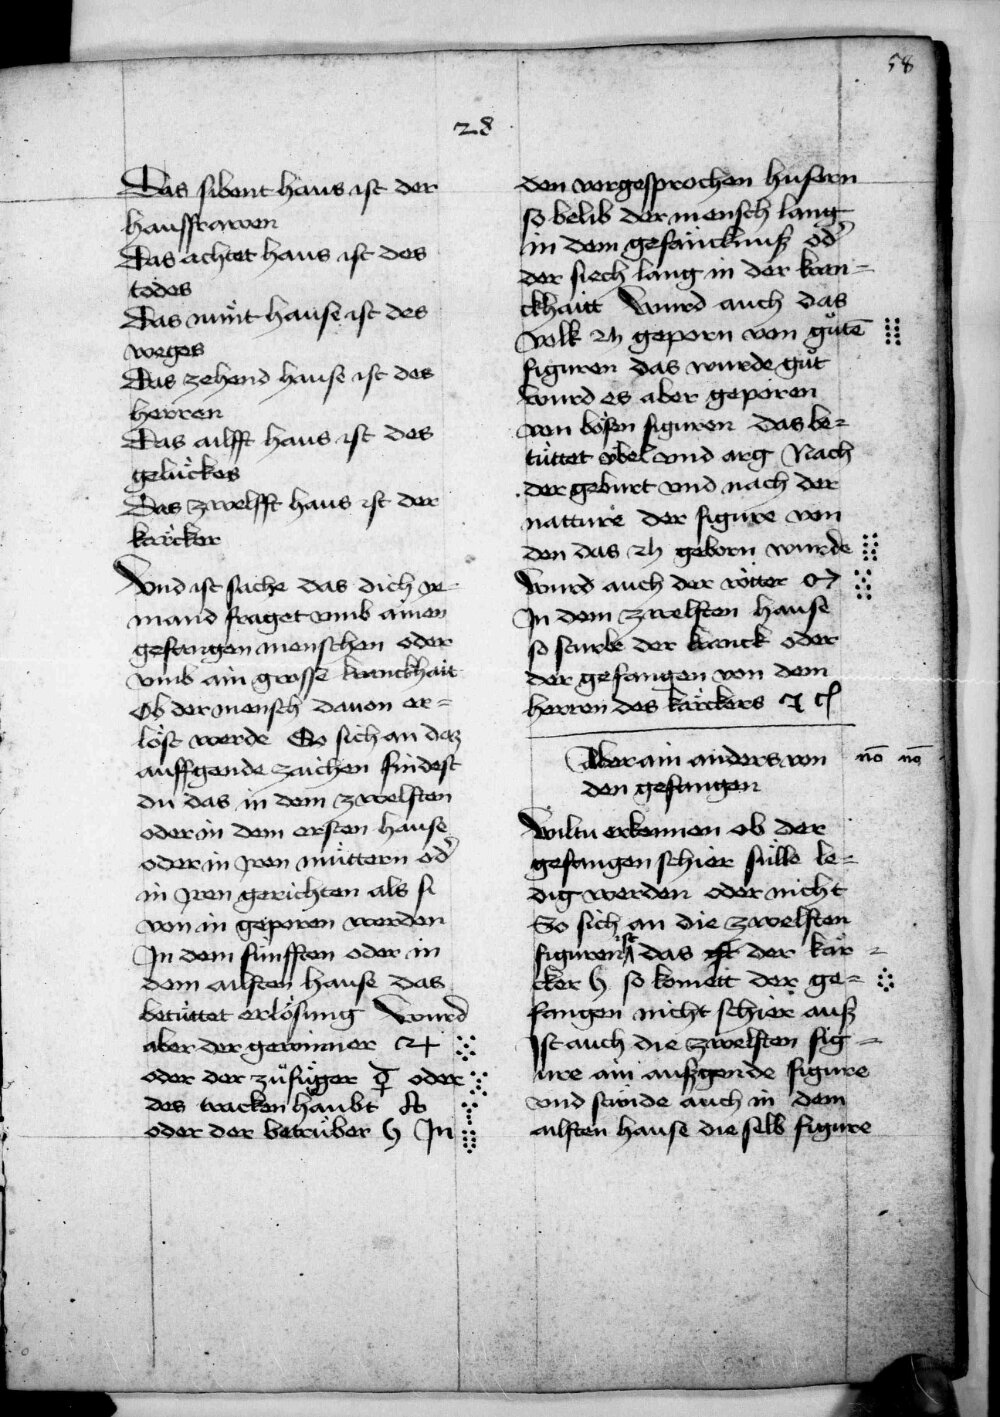 58
28
Das sibent haus ist der
hausfrawen
Das achtet haus ist des
todes
Das nu̇nt hause ist des
weges
Das zehend hause ist des
herren
Das ailfft haus ist des
gelu̇ckes
Das zwelfft haus ist der
karcker
Vnd ist sache das dich ye-
mand fraget vmb ainen
gefangen menschen oder
vmb ain grosse kranckhait
Ob der mensch dauon er=
löst werde So sich an daz
auffgende zaichen findest
du das in dem zwelften
oder in dem ersten hause
oder in jren müttern od'
in jren gerichten als si
von in geporen werden
In dem fünfften oder in
dem ailften hause das
betüttet erlösung Wurd
aber der gewinner ♃
oder der zůfůger ☿ oder
des tracken haubt ☊
oder der betrüber ♄ In
den vorgesprochen husern
so belib der mensch lang
in dem gefäncknuß od'
der siech lang in der kran=
ckhaitt Wurd auch das
volk ♃ geporn von gůtē
figuren das wurde gůt
Wurd es aber geporen
von bösen figuren das be=
tüttet vbel vnd arg Nach
der geburt vnd nach der
natture der figure von
den das ♃ geborn wurde
Wurd auch der rötter ♂
In dem zwelften hause
so sturbe der kranck oder
der gefangen von dem
herren des kärckers
Aber ain anders von
den gefangen
no no
Wiltu erkennen ob der
gefangen schier sülle le=
dig werden oder nicht
So sich an die zwelften
figuren ist das ist der kär=
cker ♄ so komett der ge=
fangen nicht schier auß
Ist auch die zwelften fig=
ure ain außgende figure
vnd stünde auch in dem
ailften hause die selb figure